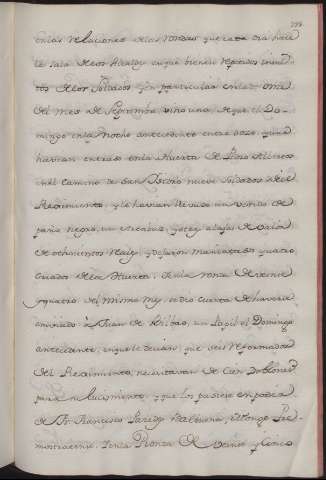 en las relaciones de las rondas que cada dia hace
la sala de los Alcaldes en que bienen repetidos
de los soldados y en particular en las
del mes de Septiembre vino una, de que el Do-
mingo en la noche antecedente entre doze y una
havian entrado en la Huerta de
en el camino de San nueve soldados de el
Regimiento, y le havian llevado un vestido de
paño negro, un y otras alajas de valor
de ochocientos Reales, y dejaron maniatados quatro
criados de la Huerta. En la ronda de veinte
y quatro del mismo mes, se dio cuenta de haverse
embiado a Juan de Bilbao, un Papel el Domingo
antecedente, en que le decian, que seis reformados
del Regimiento, necesitavan de cien Doblones
para su lucimiento, y que los pusiese en poder
de Dn Francisco Paredes Balbuena, Monge Pre-
mostratense. En la Ronda de veinte y cinco